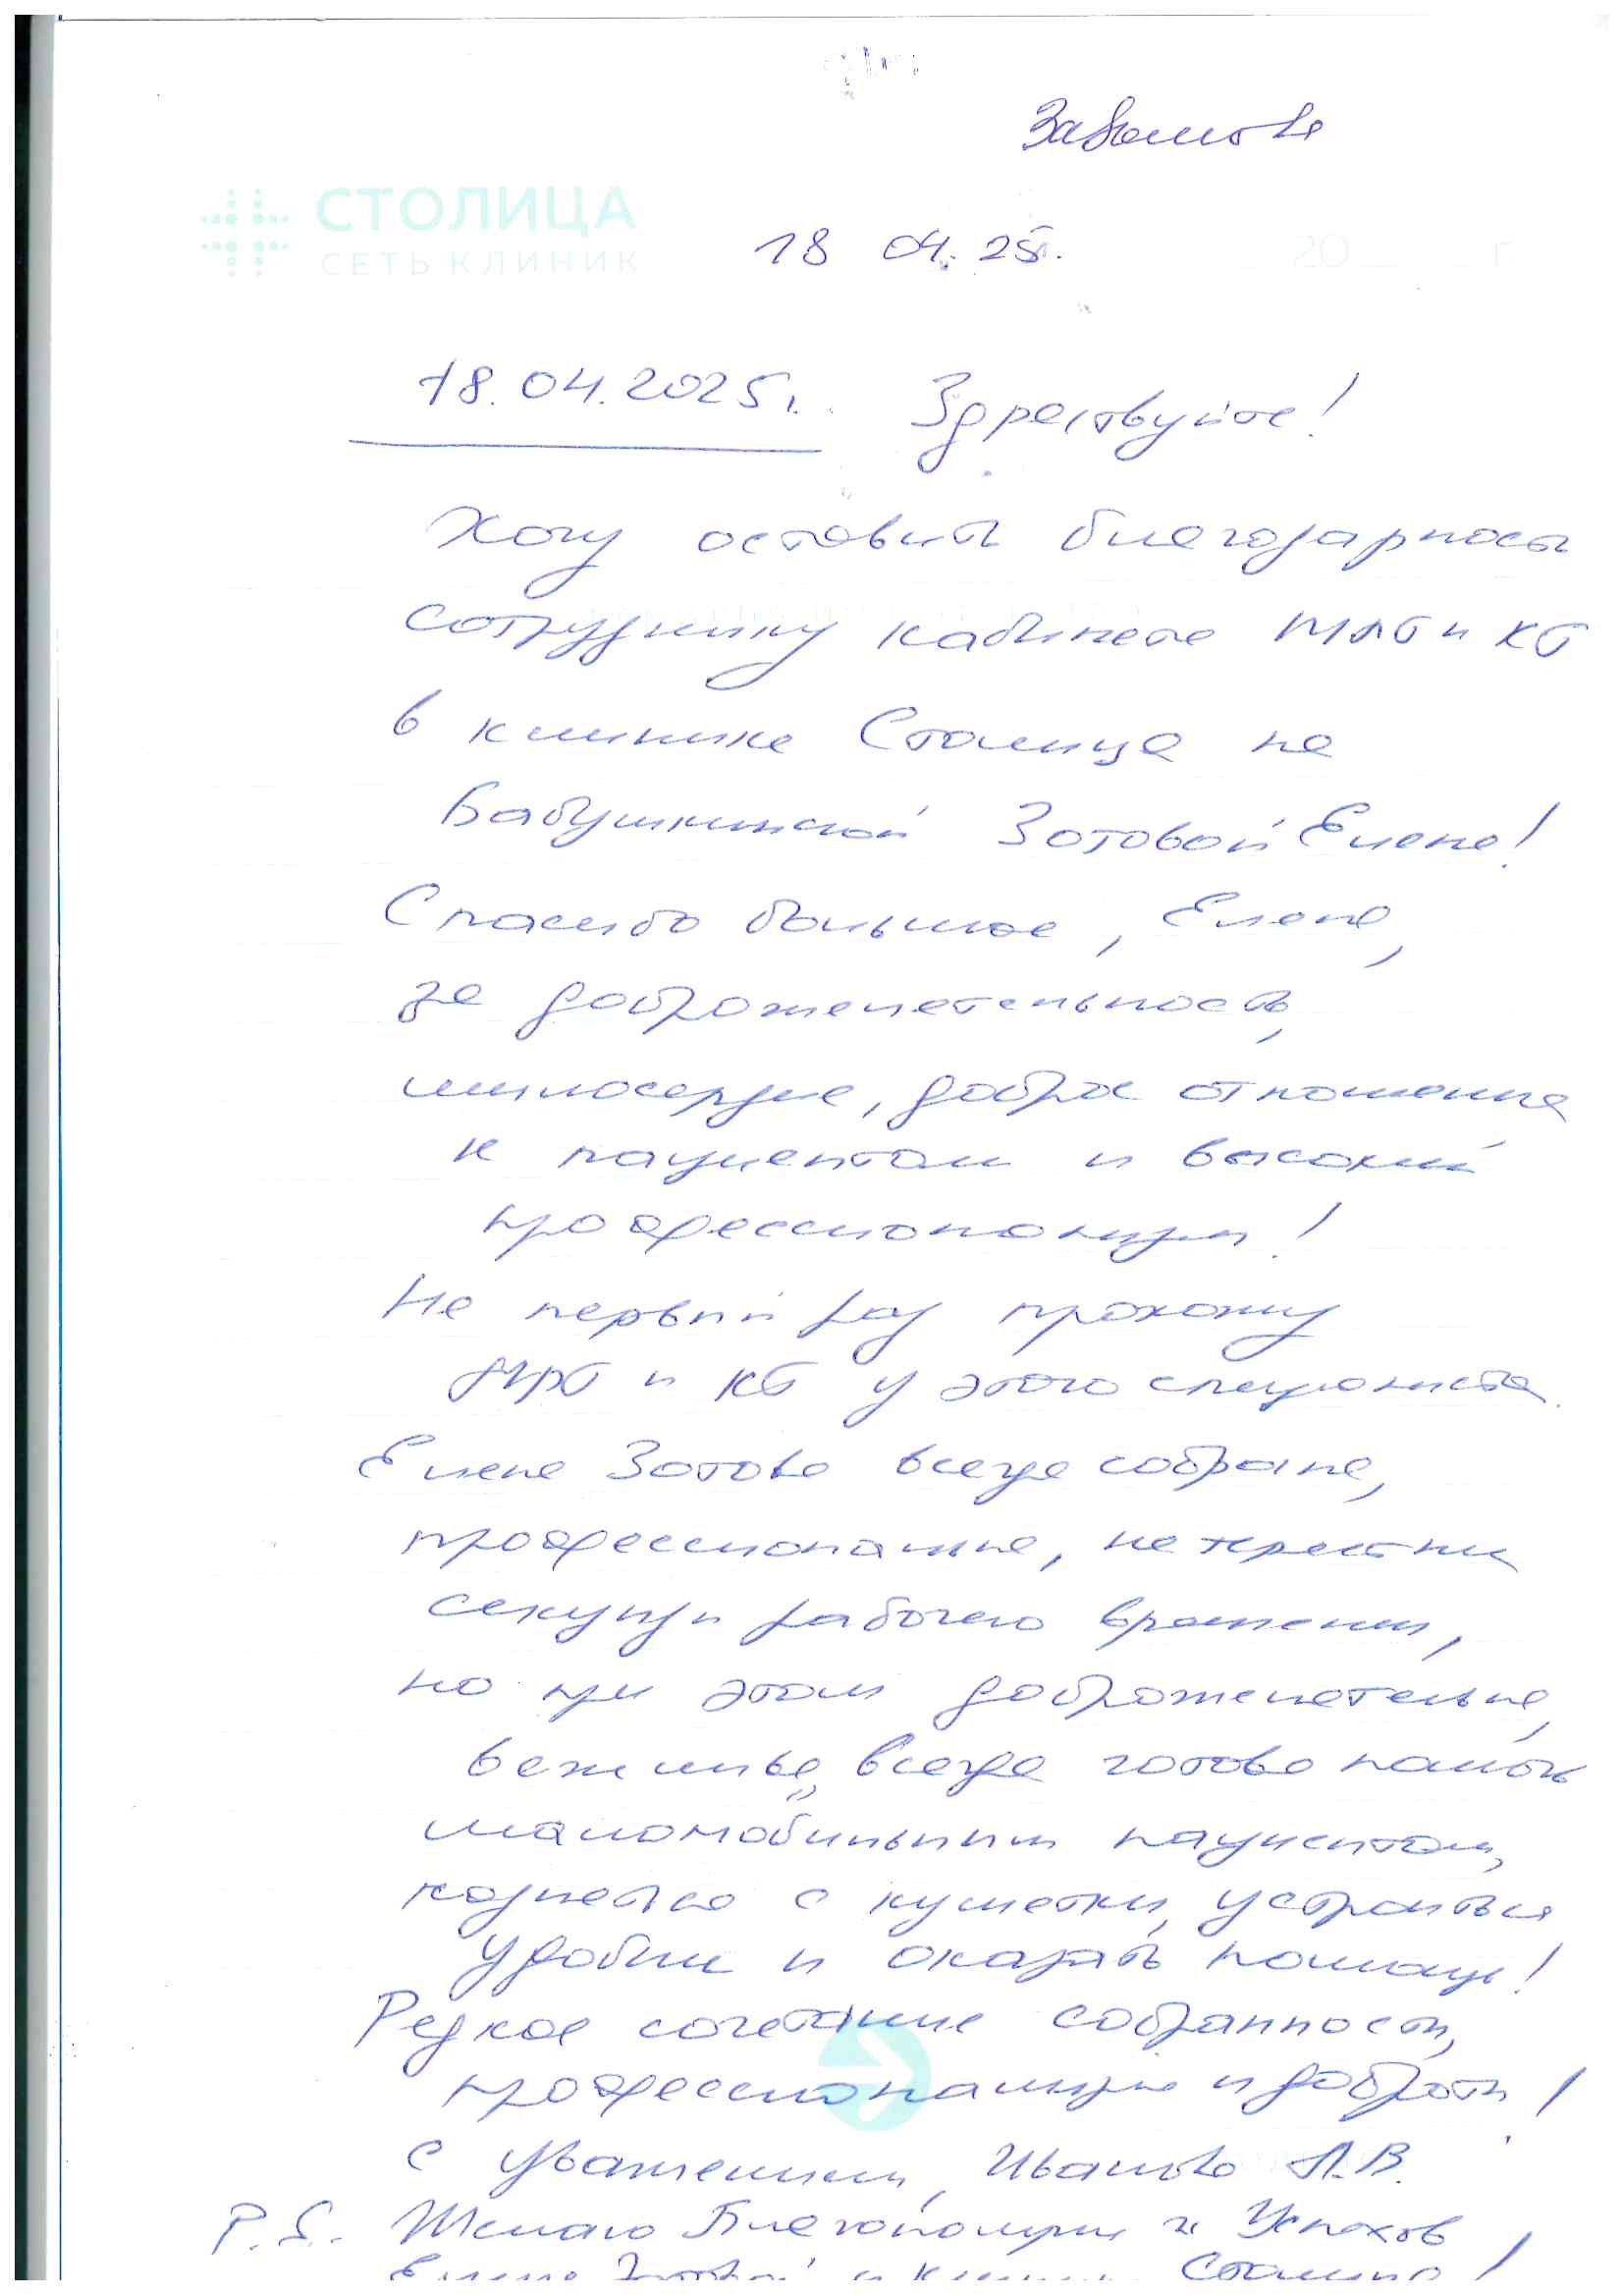 СТОЛИЦА
СЕТЬ КЛИНИК
18 04. 25.
20 г
18.04.2025г. Здравствуйте!
Хочу оставить благодарность
сотруднику кабинета МРТ и КТ
в клинике Столица на
Бабушкинской Зотовой Елене!
Спасибо большое, Елена,
за доброжелательность,
милосердие, доброе отношение
к пациентам и высокий
профессионализм!
Не первый раз прохожу
МРТ и КТ у этого специалиста.
Елена Зотова всегда собрана,
профессиональна, не теряет ни
секунды рабочего времени,
но при этом доброжелательна,
вежлива, всегда готова помочь
маломобильным пациентам,
подняться с кушетки, устроиться
удобнее и оказать помощь!
Редкое сочетание собранности,
профессионализма и доброты!
С уважением, Иванова А.В.
P.S. Желаю Благополучия и Успехов
Елене Зотовой и клинике Столица!